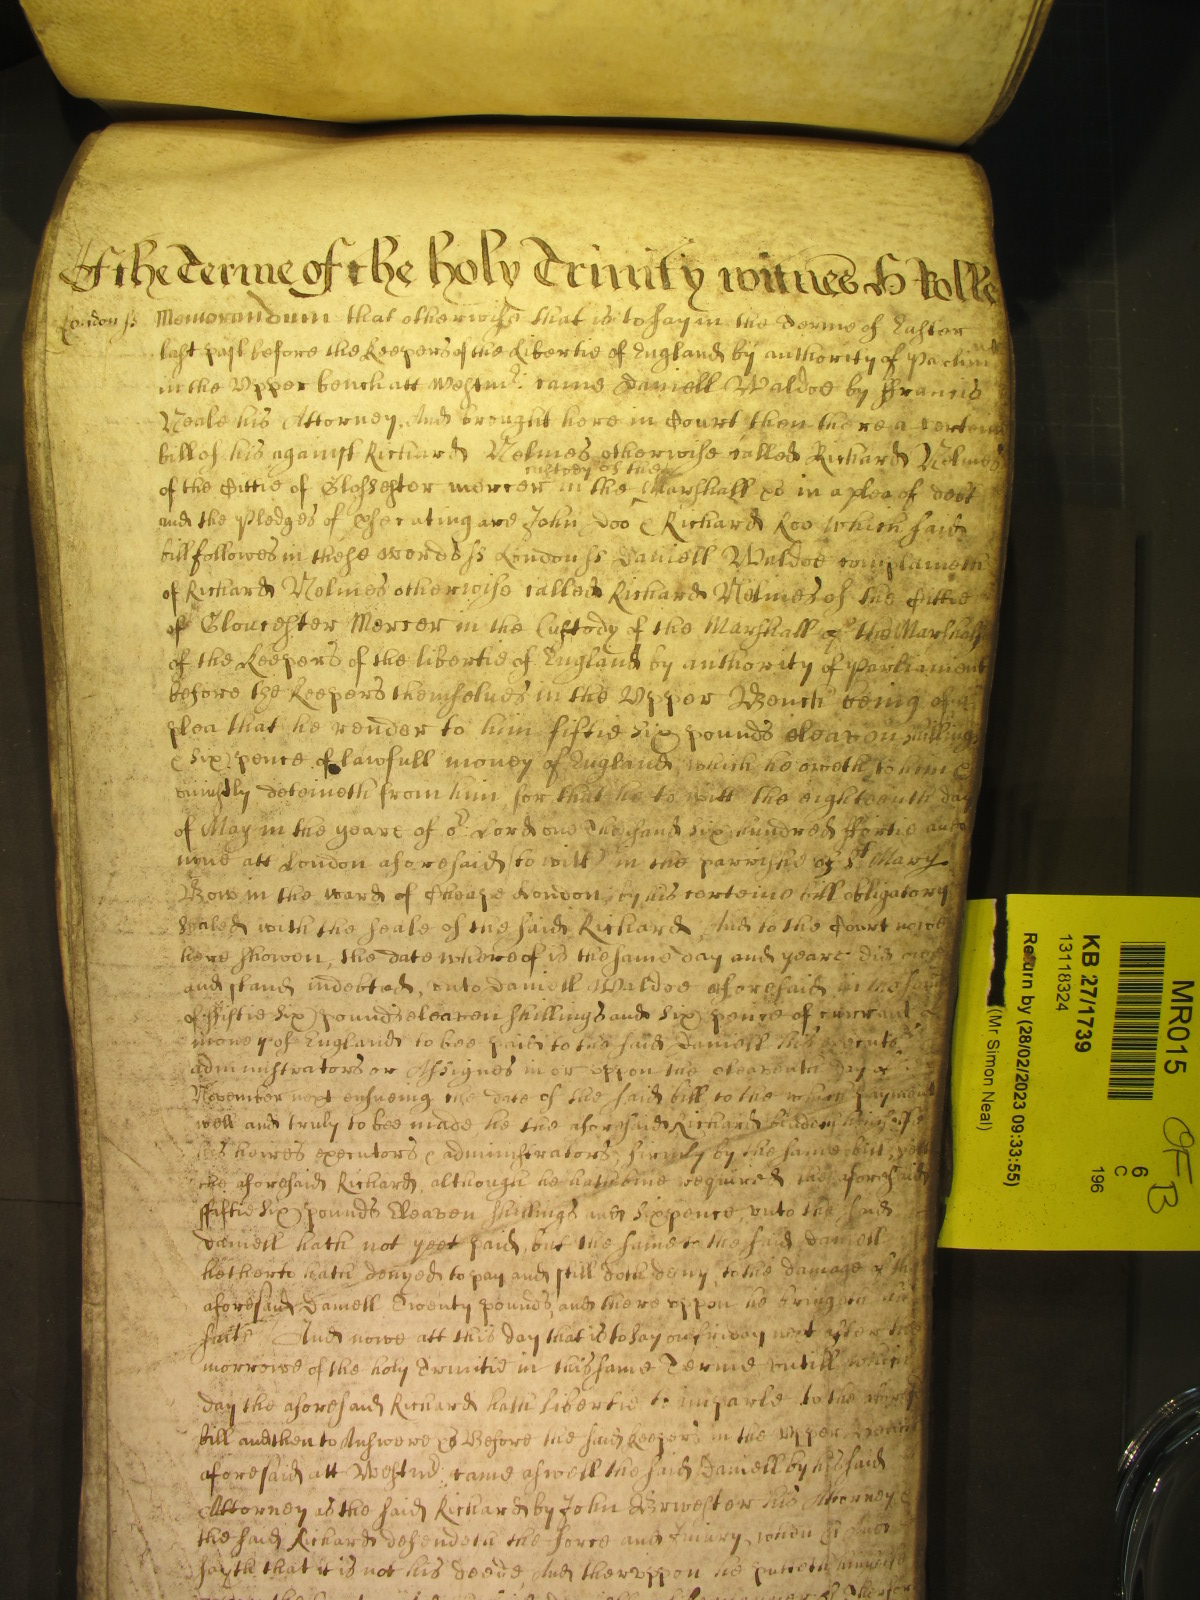 Of the Terme of the holy Trinity witnes H Rolle
London ss Memorandum that otherwise that is to say in the Terme of Easter
last past before the Keepers of the Libertie of England by authority of Parliam
in the Upper bench att Westmr. came Daniell Waldoe by Francis
Neale his Attorney. And brought here in Court then there a certeine
bill of his against Richard Nelmes otherwise called Richard Nelmes
custody of the
of the Cittie of Glocester mercer in the Marshall &c in a plea of debt
and the Pledges of prosecuting are John Doo & Richard Roo which said
bill followes in these words ss London ss Daniell Waldoe complaineth
of Richard Nelmes otherwise called Richard Nelmes of the Cittie
of Gloucester Mercer in the Custody of the Marshall of the Marshals
of the Keepers of the libertie of England by authority of Parliament
before the Keepers themselves in the Upper Bench being of a
plea that he render to him fiftie six pounds eleaven shillings
& six pence of lawfull money of England which he oweth to him &
uniustly deteineth from him, for that he to witt the eighteenth day
of May in the yeare of or. Lord one thousand six hundred ffortie and
nine att London aforesaid (to witt) in the parrishe of St Mary
Bow in the ward of Cheape London, by his certeine bill obligatory
Sealed with the seale of the said Richard, And to the Court nowe
here showen, the date whereof is the same day and yeare did owe
and stand indebted, unto Daniell Waldoe aforesaid in the some
of ffiftie six pounds eleaven shillings and six pence of currant
money of England to bee paid to the said Daniell his executors
administrators or Assignes in or uppon the eleaventh day of
November next ensueing the date of the said bill to the which payment
well and truly to bee made he the aforesaid Richard did bind himselfe
his heires executors & administrators, firmly by the same but yett
the aforesaid Richard, although he hath bine required the aforesaid
ffiftie six pounds Eleaven shillings and sixpence, unto the said
Daniell hath not yeet paid, but the same to the said Daniell
hetherto hath denyed to pay and still doth deny, to the damage of the
aforesaid Daniell Twenty pounds, and there uppon he bringeth his
suite And nowe att this day that is to say on friday next after the
morrowe of the holy Trinitie in this same Terme untill which
day the aforesaid Richard hath libertie to imparle to the aforesaid
bill and then to Answere &c Before the said Keepers in the Upper Bench
aforesaid att Westmr: came aswell the said Daniell by his said
Attorney as the said Richard by John Brwester his Attorney &
the said Richard defendeth the force and Iniury, when & and
sayth that it is not his deede, And theruppon he putteth himselfe
MR015
6
C
196
OFB
KB 27/1739
13118324
Return by (28/02/2023 09:33:55)
(Mr Simon Neal)